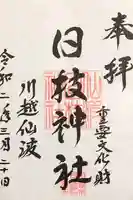 奉拝
重要文化財
日枝神社
川越仙波
令和二年三月二十日